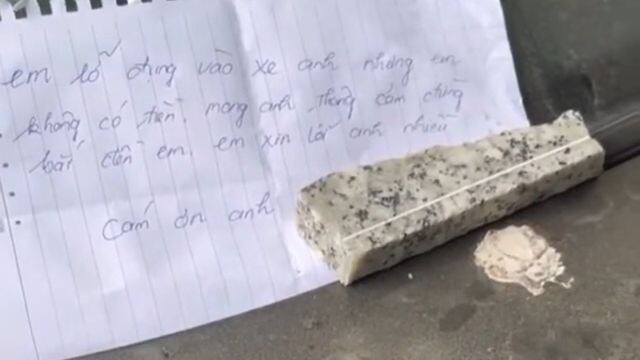 em lỡ đụng vào xe anh nhưng em
không có tiền, mong anh thông cảm đừng
bắt đền em, em xin lỗi anh nhiều
Cám ơn anh